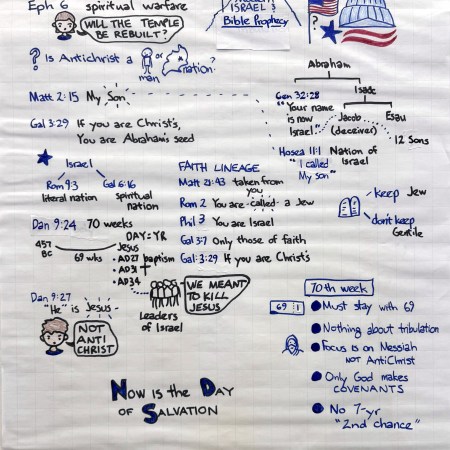 Eph 6 spiritual warfare
WILL THE TEMPLE
BE REBUILT?
ISRAEL &
Bible Prophecy
? Is Antichrist a
man
or
nation?
Matt 2:15 My Son
Gal 3:29 If you are Christ's,
You are Abraham's seed
Abraham
Isaac
Gen 32:28
"Your name
is now
Israel."
Jacob
(deceiver)
Esau
12 Sons
Hosea 11:1
"I called
My son"
Nation of
Israel
Israel
Rom 9:3
literal nation
Gal 6:16
spiritual
nation
FAITH LINEAGE
Matt 21:43 taken from
you
Rom 2 You are called a Jew
Phil 3 You are Israel
Gal 3:7 Only those of faith
Gal 3:29 If you are Christ's
keep Jew
don't keep
Gentile
Dan 9:24 70 weeks
DAY=YR
457
BC
69 wks
Jesus
• AD27 baptism
• AD31 †
• AD34
Leaders
of Israel
WE MEANT
TO KILL
JESUS
Dan 9:27
"He" is Jesus
NOT
ANTI
CHRIST
70th week
69 1
Must stay with 69
Nothing about tribulation
Focus is on Messiah
NOT AntiChrist
Only God makes
COVENANTS
No 7-yr
"2nd chance"
NOW IS THE DAY
OF SALVATION